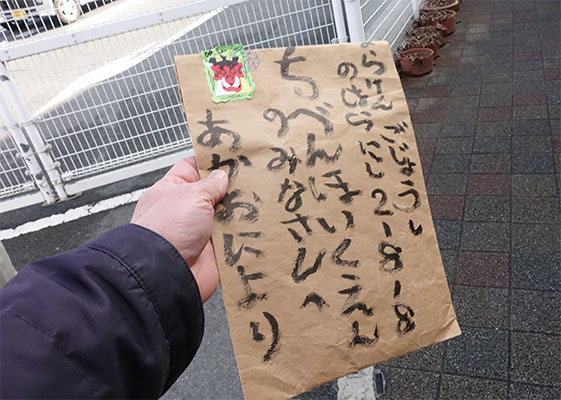 ならけんごじょうし
のはらにし2-8-8
ちべんほいくえん
のみなさんへ
あかおにより